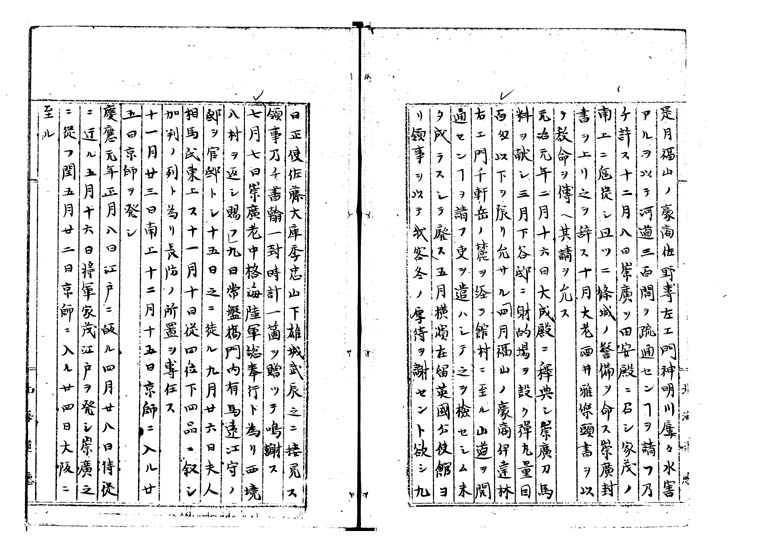 是月福山ノ豪商佐野専左エ門神明川屡々水害
アルヲ以テ河道三百間ヲ疏通センヿヲ請フ乃
チ許ス十二月八日崇廣ヲ田安殿ニ召シ家茂ノ
南上ニ扈従シ且ツ二條城ノ警備ヲ命ス崇廣封
書ヲ上リ之ヲ辞ス十月大老酒井雅樂頭書ヲ以
テ教命ヲ傳ヘ其請ヲ允ス
元治元年二月十六日大成殿ニ釋典シ崇廣刀馬
料ヲ献シ三月下谷邸ニ財的場ヲ設ク彈丸量目
百匁以下ヲ限リ允サル四月福山ノ豪商伊達林
右エ門千軒岳ノ麓ヲ経テ館村ニ至ル山道ヲ開
通センヿヲ請フ吏ヲ遣ハシテ之ヲ檢セシム未
タ成ラスシテ廢ス五月横濱在留英國公使館ヨ
リ領事ヲ以テ我客冬ノ厚待ヲ謝セント欲シ九
日正使佐藤大庫季忠山下雄城武辰之ニ接見ス
領事乃チ書翰一封時計一箇ヲ贈ツテ鳴謝ス
七月七日崇廣老中格海陸軍総奉行ト為リ西境
八村ヲ返シ賜フ九日常盤橋門内有馬遠江守ノ
邸ヲ官邸トシ十五日之ニ徙ル九月廿六日夫人
相馬氏東上ス十一月十日従四位下四品ニ叙シ
加判ノ列ト為リ長防ノ所置ヲ専任ス
十一月廿三日南上十二月十五日京師ニ入ル廿
五日京師ヲ発シ
慶應元年正月八日江戸ニ皈ル四月廿八日侍従
ニ迁ル五月十六日将軍家茂江戸ヲ発シ崇廣之
ニ従フ閏五月廿二日京師ニ入ル廿四日大阪ニ
至ル